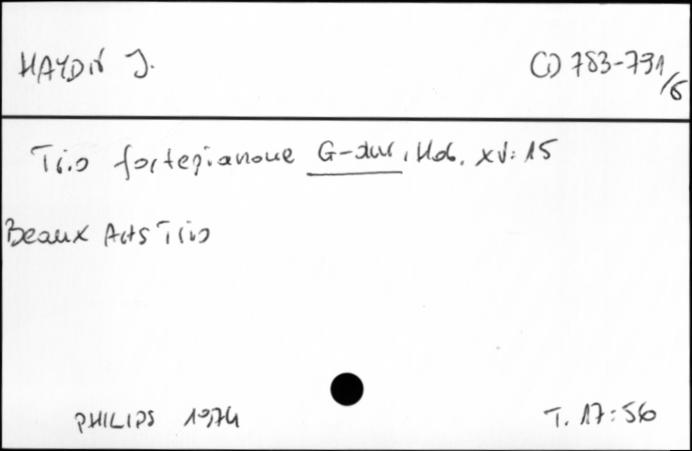 HAYDN J.
CD 783-791/6
Trio fortepianowe G-dur, Hob. XV: 15
Beaux Arts Trio
PHILIPS 1974
T. 17:56